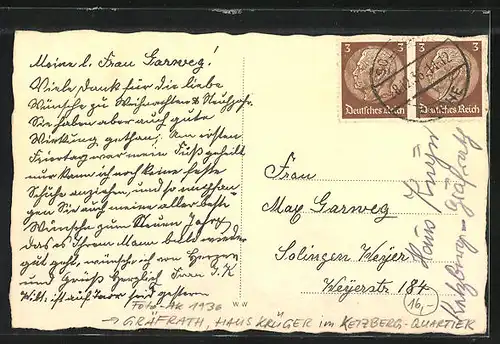 Meine l. Frau Garweg!
Viele Dank für die liebe
Wünsche zu Weihnachten & Neujahr.
Sie haben aber auch gute
Wirkung gethan, Am ersten
Feiertag war mein Fuß geheilt
nur kann ich noch keine feste
Schuhe anziehen, und so empfan
gen Sie auch meine aller beste
Wünsche zum Neuen Jahr,
das es Ihrem Mann bald wieder
gut geht, wünsche ich von Herzen
und Grüß Herzlich Frau J. K.
Willi ist auf
gestern
3
3
Deutsches Reich
Deutsches Reich
Frau
Max Garweg
Solingen Weyer
Weyerstr. 184
Haus Krüger
Ketzberg-Gräfrath
16,-
WW
Foto-AK 1936
→ GRÄFRATH, HAUS KRÜGER im KETZBERG-QUARTIER